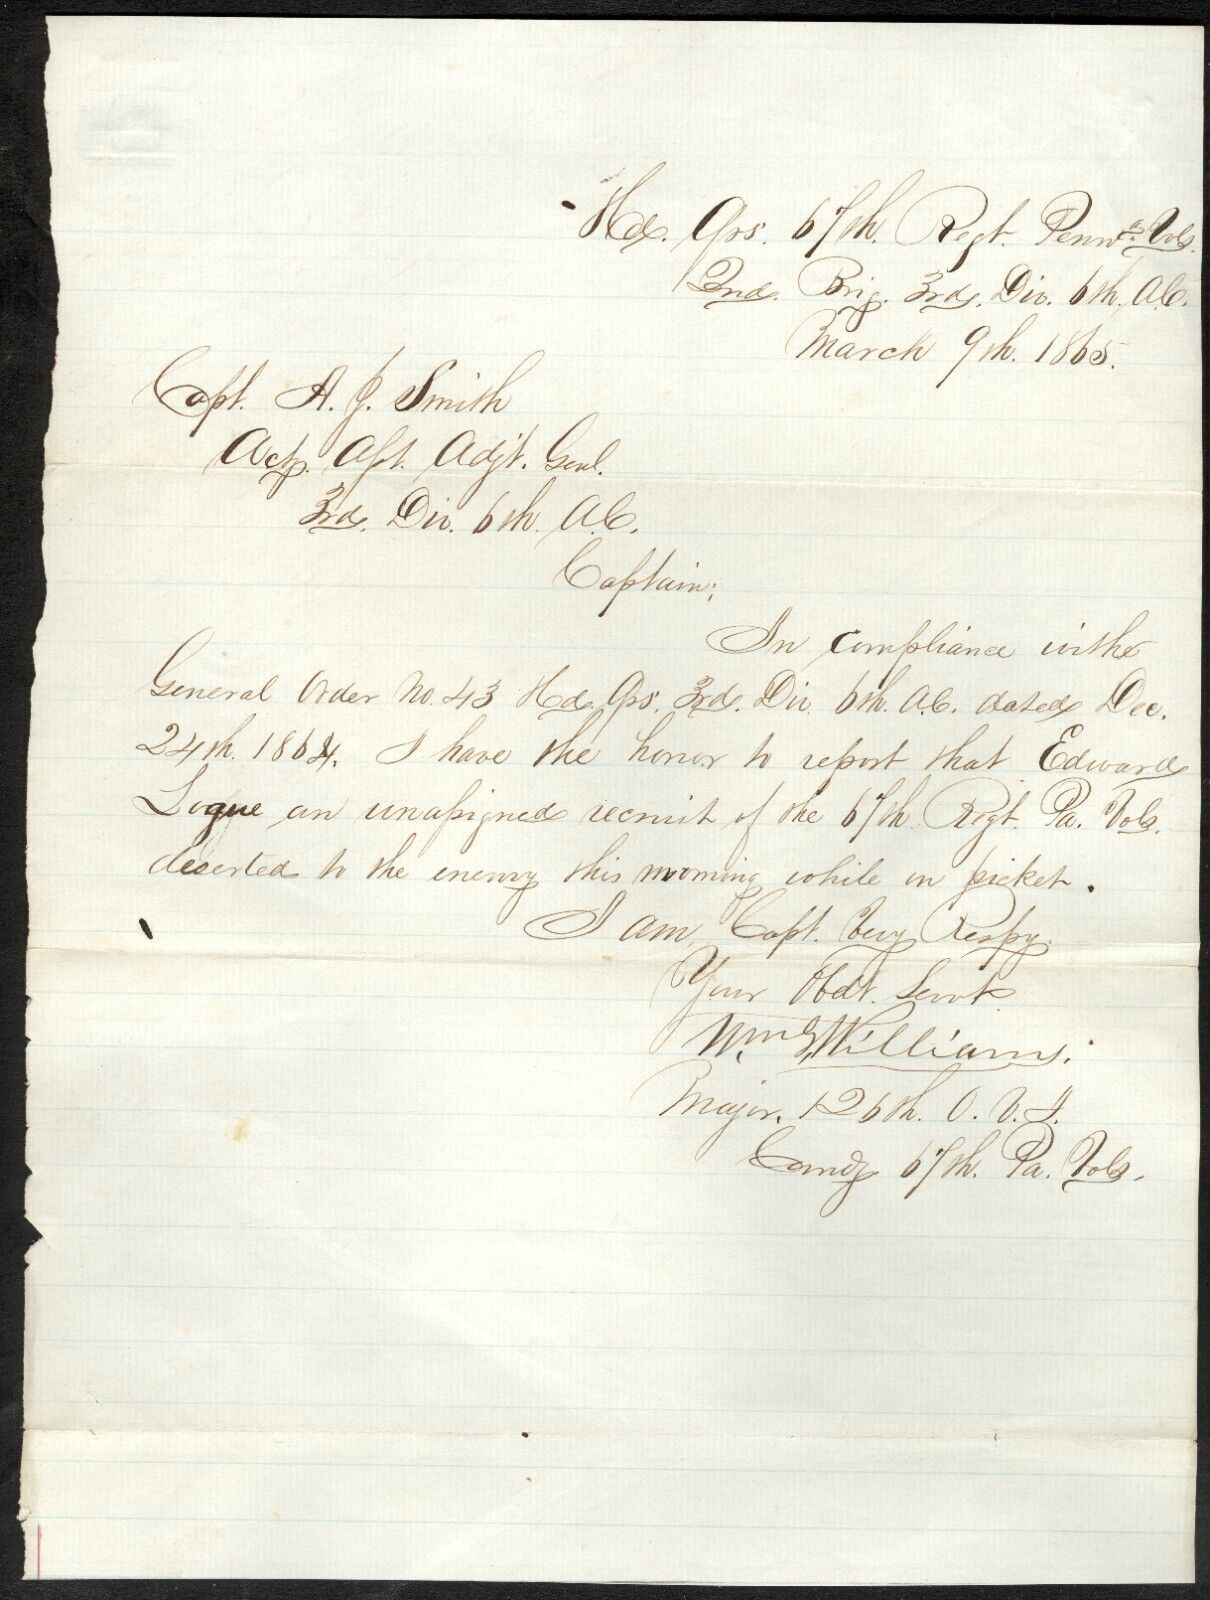 Hd. Qrs. 67th. Regt. Penna. Vols.
2nd. Brig. 3rd. Div. 6th. A.C.
March 9th. 1865.
Capt. A. J. Smith
Actg. Asst. Adjt. Genl.
3rd. Div. 6th. A.C.
Captain;
In compliance with
General Order No. 43 Hd. Qrs. 3rd. Div. 6th. A.C. dated Dec.
24th. 1864. I have the honor to report that Edward
Logue an unassigned recruit of the 67th. Regt. Pa. Vols.
deserted to the enemy this morning while on picket.
I am, Capt. Very Respy.
Your Obdt. Servt.
Wm. G. Williams.
Major. 126th. O. V. I.
Comdg 67th. Pa. Vols.